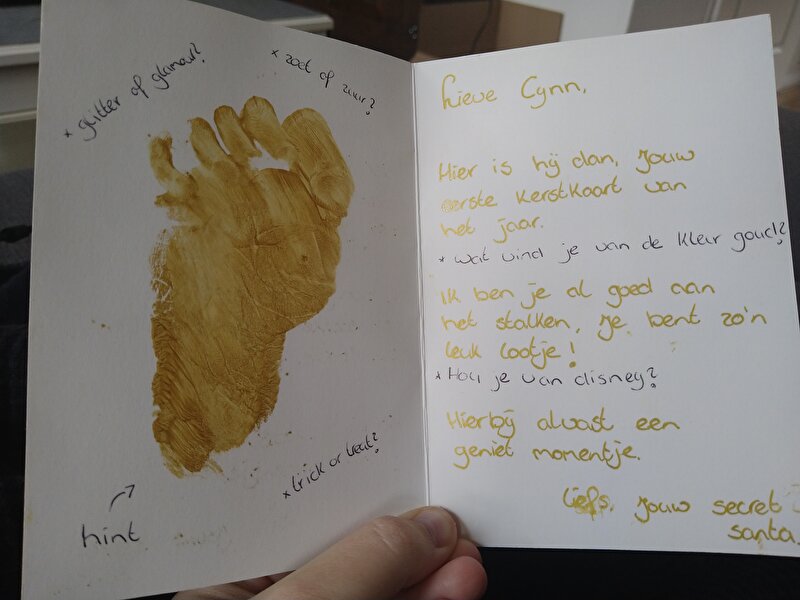 * glitter of glamour?
* zoet of zuur?
* trick or treat?
hint
Lieve Cynn,
Hier is hij dan, jouw
eerste kerstkaart van
het jaar.
* wat vind je van de kleur goud?
Ik ben je al goed aan
het stalken, je bent zo'n
leuk lootje!
* Hou je van disney?
Hierbij alvast een
geniet momentje.
liefs, jouw secret
santa